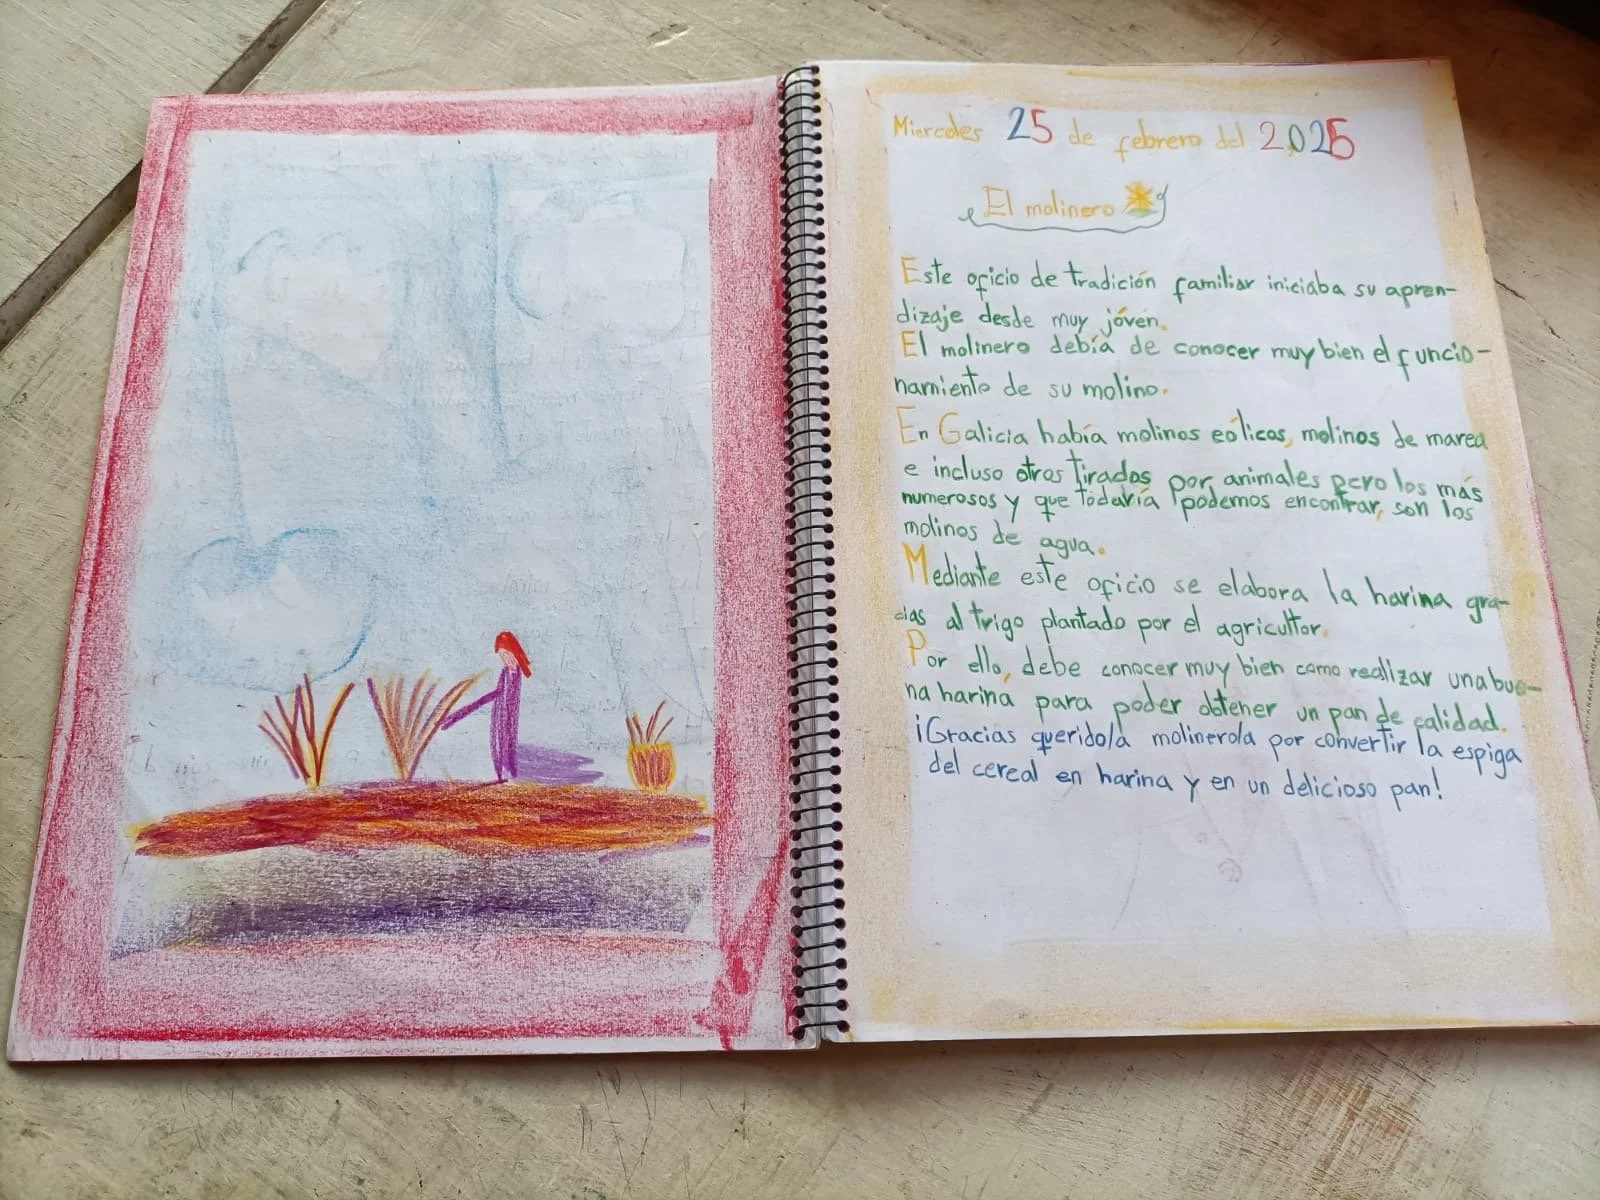 Miercoles 25 de febrero del 2,026
El molinero
Este oficio de tradición familiar iniciaba su apren-
dizaje desde muy jóven.
El molinero debía de conocer muy bien el funcio-
namiento de su molino.
En Galicia había molinos eólicos, molinos de marea
e incluso otros tirados por animales pero los más
numerosos y que todavía podemos encontrar, son los
molinos de agua.
Mediante este oficio se elabora la harina gra-
cias al trigo plantado por el agricultor.
Por ello, debe conocer muy bien como realizar una bue-
na harina para poder obtener un pan de calidad.
¡Gracias querido/a molinero/a por convertir la espiga
del cereal en harina y en un delicioso pan!